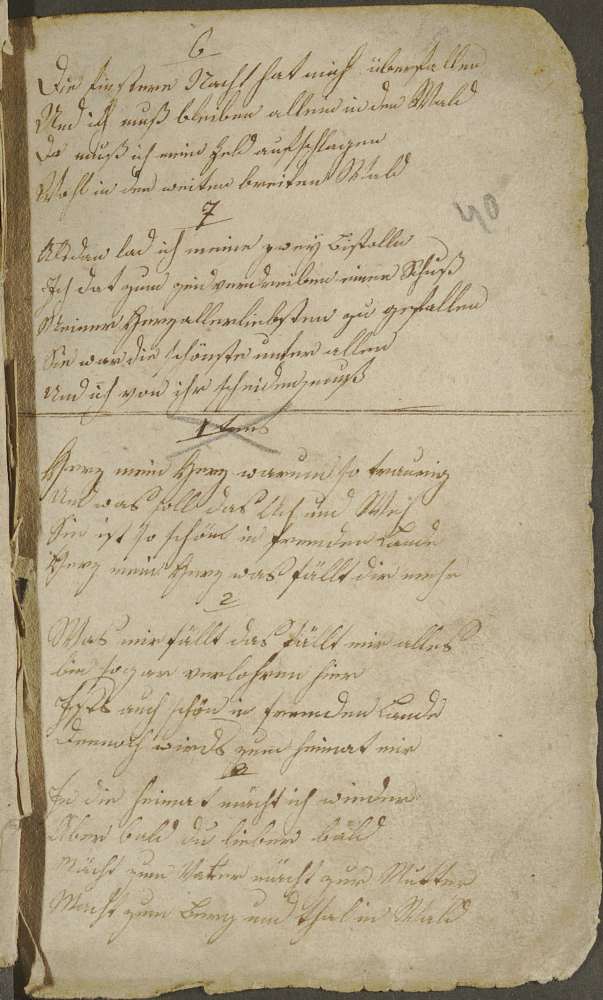 6
Die finstere Nacht hat mich überfallen
Und ich muß bleiben allein in den Wald
Da muß ich mein Zeld aufschlagen
Wohl in den weiten breiten Wald
40
7
Alsdan lad ich meine zwey Bistollen
Ich dat zum einen Schuß
Meiner Herzallerliebsten zu gefallen
Sie war die schönste unter allen
Und ich von ihr scheiden muß
1tens
Herz mein Herz warum so traurig
Und was soll das Ach und Weh
Sie ist so schön in fremden Lande
Herz mein Herz was fällt dir mehr
2
Was mir fällt das fällt mir alles
bin sogar verlohren hier
Ists auch schön in fremden Lande
Dennoch wirds zum heimat mir
3
In die heimat möcht ich wieder
Aber bald du lieber bald
Möcht zum Vater möcht zur Mutter
Möcht zum Berg und thal in Wald